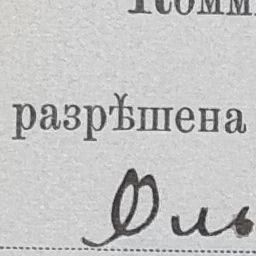 Комм
разрѣшена
Оль